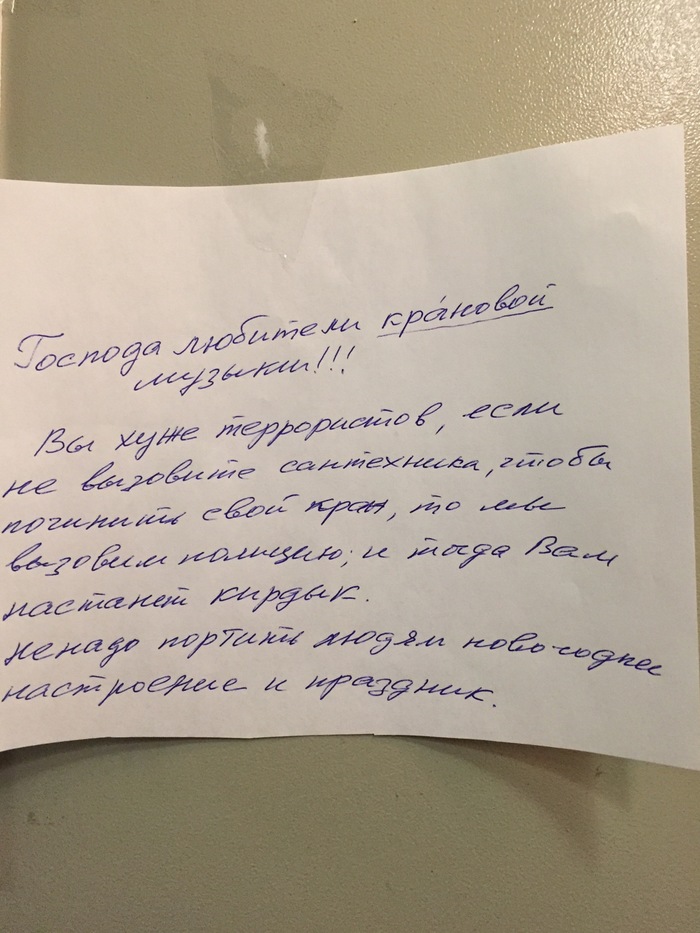 Господа любители кра́новой
музыки!!!
Вы хуже террористов, если
не вызовите сантехника, чтобы
починить свой кран, то мы
вызовим полицию; и тогда Вам
настанет кирдык.
ненадо портить людям новогоднее
настроение и праздник.